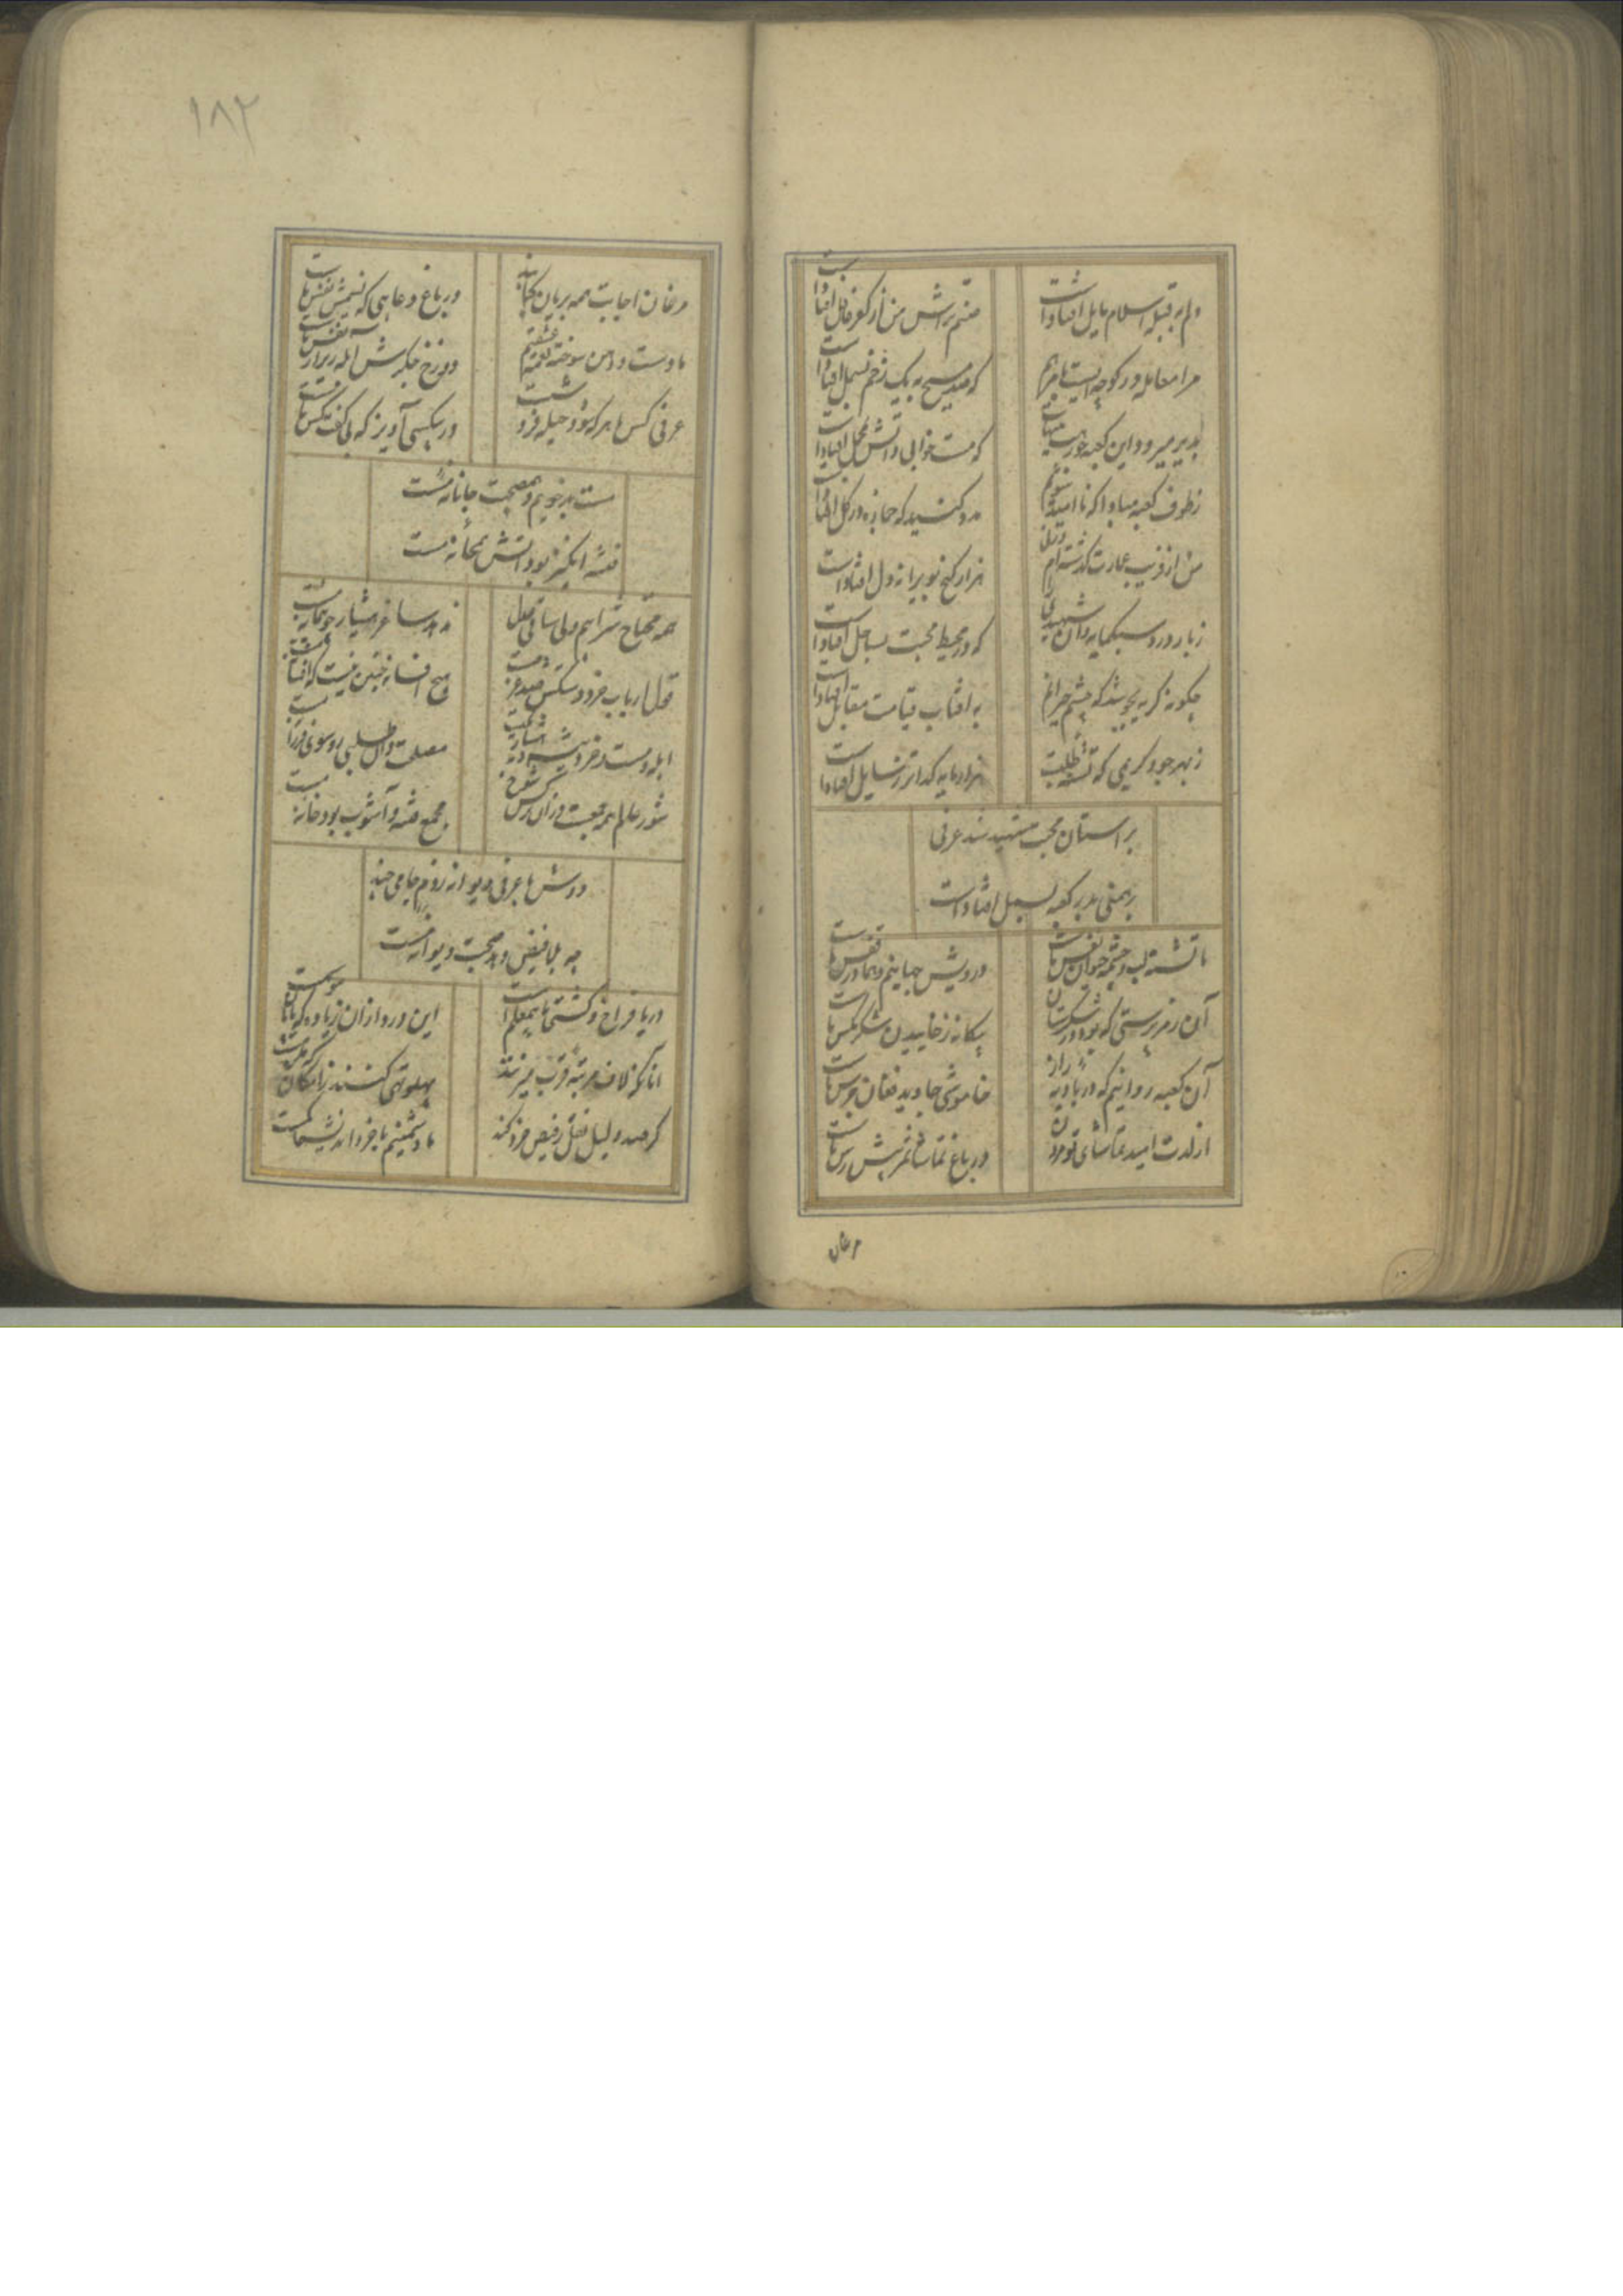 دلم به قبله اسلام مایل افتادست
صنم تراش من از کفر غافل افتادست
مرا معامله در کوچه ایست با مرهم
که صد مسیح به یک زخم بسمل افتادست
بدیر میرود این کعبه جو
که مست خوابی و آتش بمحمل افتادست
ز طوف کعبه مبادا که ناامید شوم
مدد کنید که جمازه در گل افتادست
من از فریب عمارت گدا شدم ورنه
هزار گنج بویرانه دل افتادست
زبار درد سبکمایه دان شهیدی را
که در محیط محبت بساحل افتادست
چگونه گریه نجوشد که چشم حیرانم
به آفتاب قیامت مقابل افتادست
ز بهر جود کریمی که تشنه طلبست
هزار مایه گداتر ز سایل افتادست
بر آستان محبت شهید شد عرفی
برهمنی بدر کعبه بسمل افتادست
ما تشنه لب و چشمه حیوان نفس ماست
درویش جهانیم و هما در قفس ماست
آن رمز پرستی که بود در شکرستان
بیگانه ز خاییدن شکر مگس ماست
آن کعبه روانیم که در بادیه راز
خاموشی جاوید فغان جرس ماست
از لذت امید تماشای تو مردن
در باغ تماشا ثمر پیش رس ماست
مرغان
۱۸۲
مرغان اجابت همه بریان بکبابند
در باغ دعایی که نسیمش نفس ماست
ما دست و دامن سوخته شعله عشقیم
دوزخ جگرش آبله ریز از نفس ماست
عرفی کس ما هر که بود حیله فروشست
در بیکسی آویز که بی کف کس ماست
مست بدخویم و همصحبت جانانه مست
فتنه انگیز بود آتش بمخانه مست
همه محتاج شرابیم ولی ساقی وصل
ندهد ساغر هشیار چو پیمانه مست
قول ارباب خرد در شکن صد غرضست
هیچ افسانه چنین نیست که افسانه مست
ابله و مست در خرد
مصلحت دان طلبی رو سوی فرزانه مست
شور علم همه جمعست در آن نرگس شوخ
مجمع فتنه و آشوب بود خانه مست
دوش با عرفی دیوانه زدم جامی چند
چه بلا فیض دهد صحبت دیوانه مست
دریا فراخ و کشتی ما بیمعلم است
این درد از آن زیاده که با ما
آنان که لاف مرتبه قرب میزنند
پهلو تهی کنند ز امکان که
گر صد دلیل نقل ز فیض خرد کند
ما دشمنیم با خرد اندیشه حاکمست